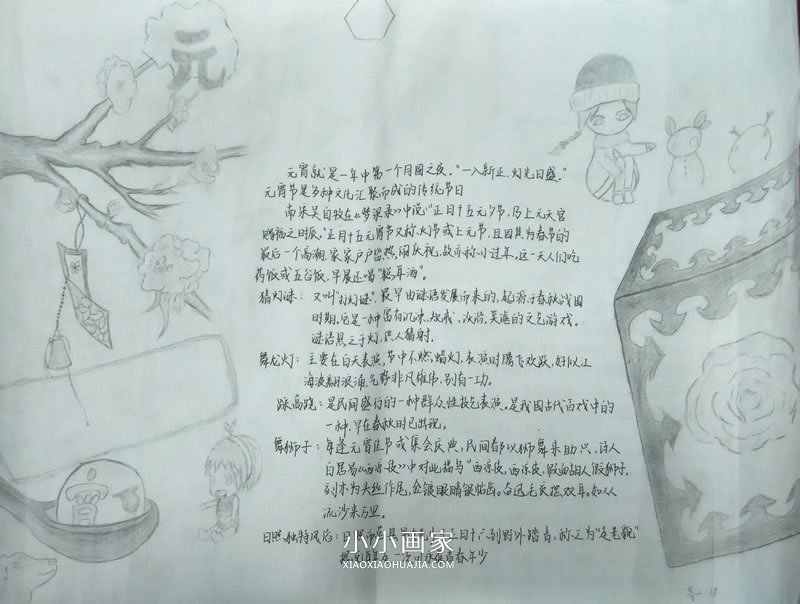 元
元宵就是一年中第一个月圆之夜。"一入新正,灯光日盛."
元宵节是多种文化汇聚而成的传统节日
南宋吴自牧在《梦粱录》中说:"正月十五元夕节,乃上元天官
赐福之时辰."正月十五元宵节又称灯节或上元节,且因其为春节的
最后一个高潮,家家户户皆热闹庆祝,故亦称小过年。这一天人们吃
药饭或五谷饭,早晨还喝"聪耳酒"。
猜灯谜:又叫"打灯谜",最早由谜语发展而来的,起源于春秋战国
时期.它是一种富有讥谏、规戒、诙谐、笑谑的文艺游戏.
谜语悬之于灯,供人猜射.
舞龙灯:主要在白天表演,节中不燃蜡灯,表演时腾飞欢跃,好似江
海波翻浪涌,气势非凡雄伟,别有一功.
踩高跷:是民间盛行的一种群众性技艺表演,是我国古代百戏中的
一种,早在春秋时已出现。
舞狮子:每逢元宵佳节或集会庆典,民间都以狮舞来助兴,诗人
白居易《西凉伎》中对此描写"西凉伎,西凉伎,假面胡人假狮子,
刻木为头丝作尾,金镀眼睛银帖齿。奋迅毛衣摆双耳,如从
流沙来万里。
日照独特风俗:日照
正月十六到野外踏青,称之为"走老貌"
青春年少
宵
小小画家
XIAOXIAOHUAJIA.COM
高一 18